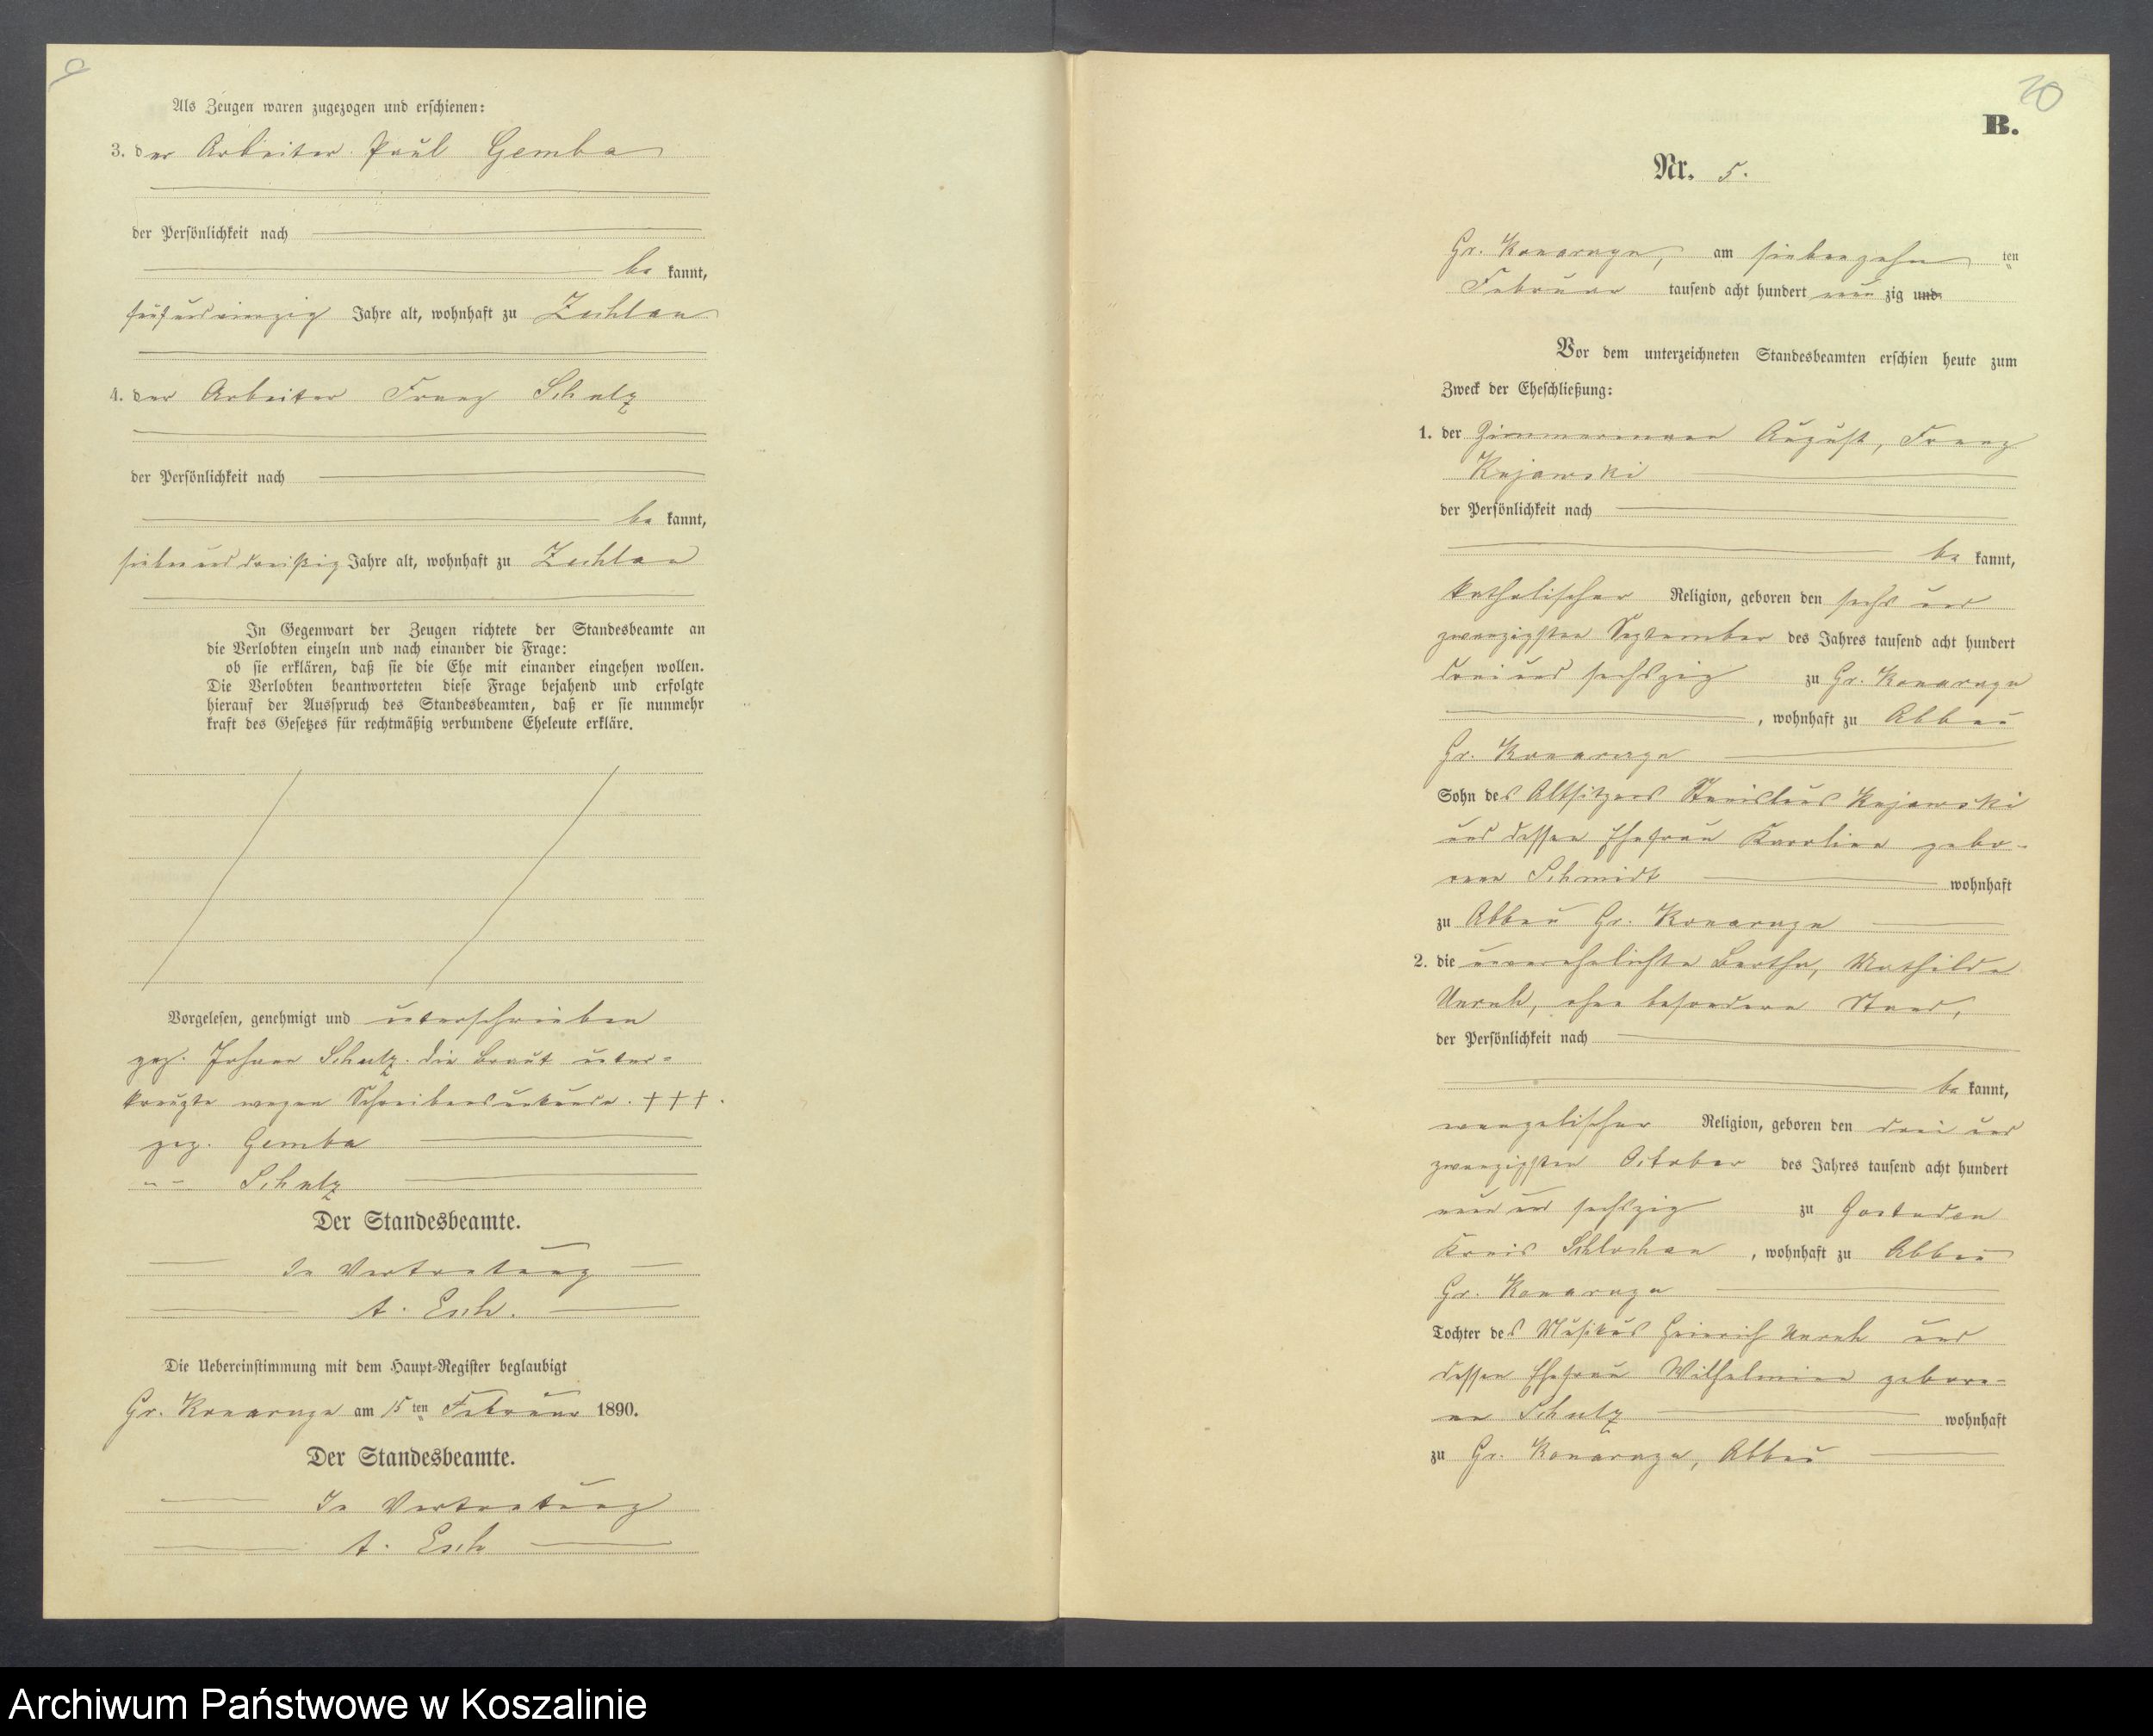 9
Als Zeugen waren zugezogen und erschienen:
3. der Arbeiter Paul Gemba
der Persönlichkeit nach
be kannt,
fünf und vierzig Jahre alt, wohnhaft zu Zechlau
4. der Arbeiter Franz Schulz
der Persönlichkeit nach
be kannt,
sieben und dreißig Jahre alt, wohnhaft zu Zechlau
In Gegenwart der Zeugen richtete der Standesbeamte an
die Verlobten einzeln und nach einander die Frage:
ob sie erklären, daß sie die Ehe mit einander eingehen wollen.
Die Verlobten beantworteten diese Frage bejahend und erfolgte
hierauf der Ausspruch des Standesbeamten, daß er sie nunmehr
kraft des Gesetzes für rechtmäßig verbundene Eheleute erkläre.
Vorgelesen, genehmigt und unterschrieben
gez. Johann Schulz. die Braut unter-
kreuzte wegen Schreibensunkunde. +++.
gez. Gemba
" Schulz
Der Standesbeamte.
In Vertretung
A. Esch.
Die Uebereinstimmung mit dem Haupt-Register beglaubigt
Gr. Konarzyn am 15 ten Februar 1890.
Der Standesbeamte.
In Vertretung
A. Esch
B.
Nr. 5.
Gr. Konarzyn, am siebenzehn ten
Februar tausend acht hundert neun zig und
Vor dem unterzeichneten Standesbeamten erschien heute zum
Zweck der Eheschließung:
1. der Zimmermann August, Franz
Kujawski
der Persönlichkeit nach
be kannt,
katholischer Religion, geboren den sechs und
zwanzigsten September des Jahres tausend acht hundert
drei und sechszig zu Gr. Konarzyn
, wohnhaft zu Abbau
Gr. Konarzyn
Sohn des Altsitzers Stanislaus Kujawski
und dessen Ehefrau Karoline gebo-
rene Schmidt wohnhaft
zu Abbau Gr. Konarzyn
2. die unverehelichte Bertha, Mathilde
Unruh, ohne besondern Stand,
der Persönlichkeit nach
be kannt,
evangelischer Religion, geboren den drei und
zwanzigsten October des Jahres tausend acht hundert
neun und sechszig zu
Kreis Schlochau, wohnhaft zu Abbau
Gr. Konarzyn
Tochter des Musikus Heinrich Unruh und
dessen Ehefrau Wilhelmine gebore-
ne Schulz wohnhaft
zu Gr. Konarzyn, Abbau
Archiwum Państwowe w Koszalinie